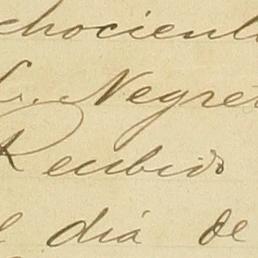 chocient
C. Negre
Recibido
el dia de